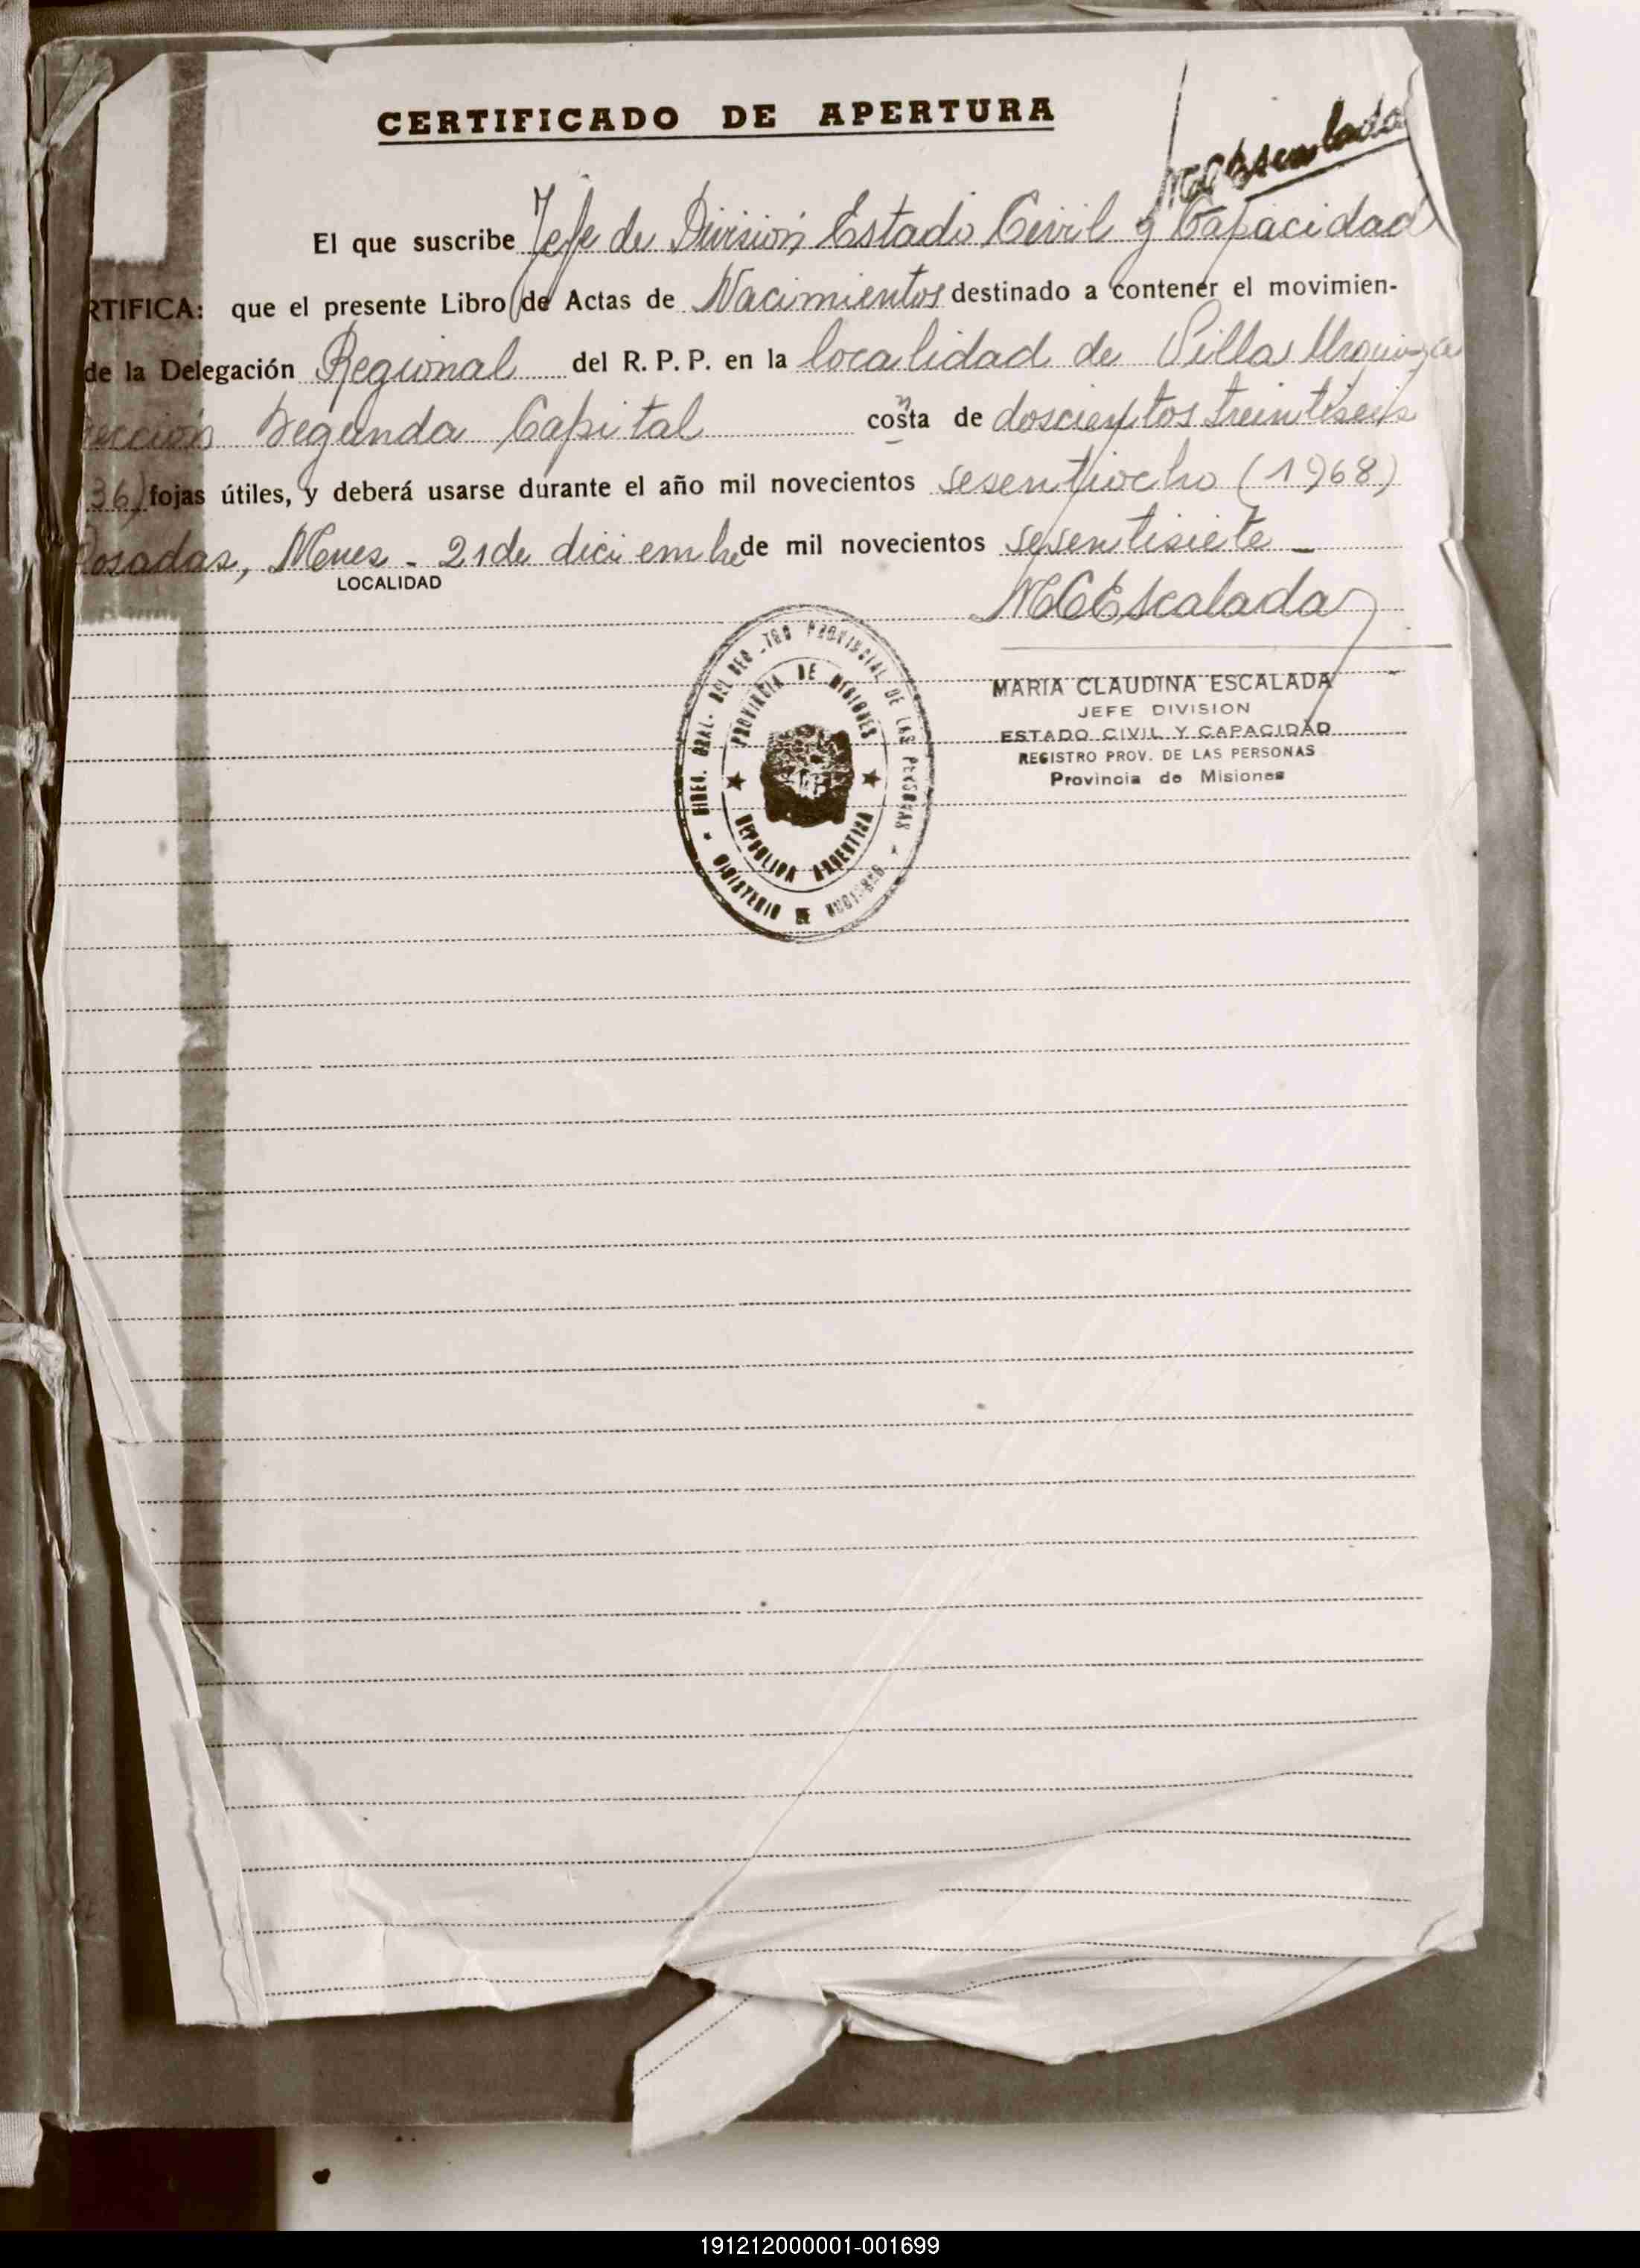 CERTIFICADO DE APERTURA
MCEscalada
El que suscribe Jefe de División Estado Civil y Capacidad
RTIFICA: que el presente Libro de Actas de Nacimientos destinado a contener el movimien-
de la Delegación Regional del R. P. P. en la localidad de Villa Urquiza
ección Segunda Capital consta de doscientos treintiseis
36) fojas útiles, y deberá usarse durante el año mil novecientos sesentiocho (1968)
Posadas, Mnes - 21 de diciembre de mil novecientos sesentisiete -
LOCALIDAD
MCEscalada
MARIA CLAUDINA ESCALADA
JEFE DIVISION
ESTADO CIVIL Y CAPACIDAD
REGISTRO PROV. DE LAS PERSONAS
Provincia de Misiones
DIREC. GRAL. DEL REG TRO PROVINCIAL DE LAS PERSONAS
MINISTERIO DE GOBIERNO
PROVINCIA DE MISIONES
REPUBLICA ARGENTINA
191212000001-001699